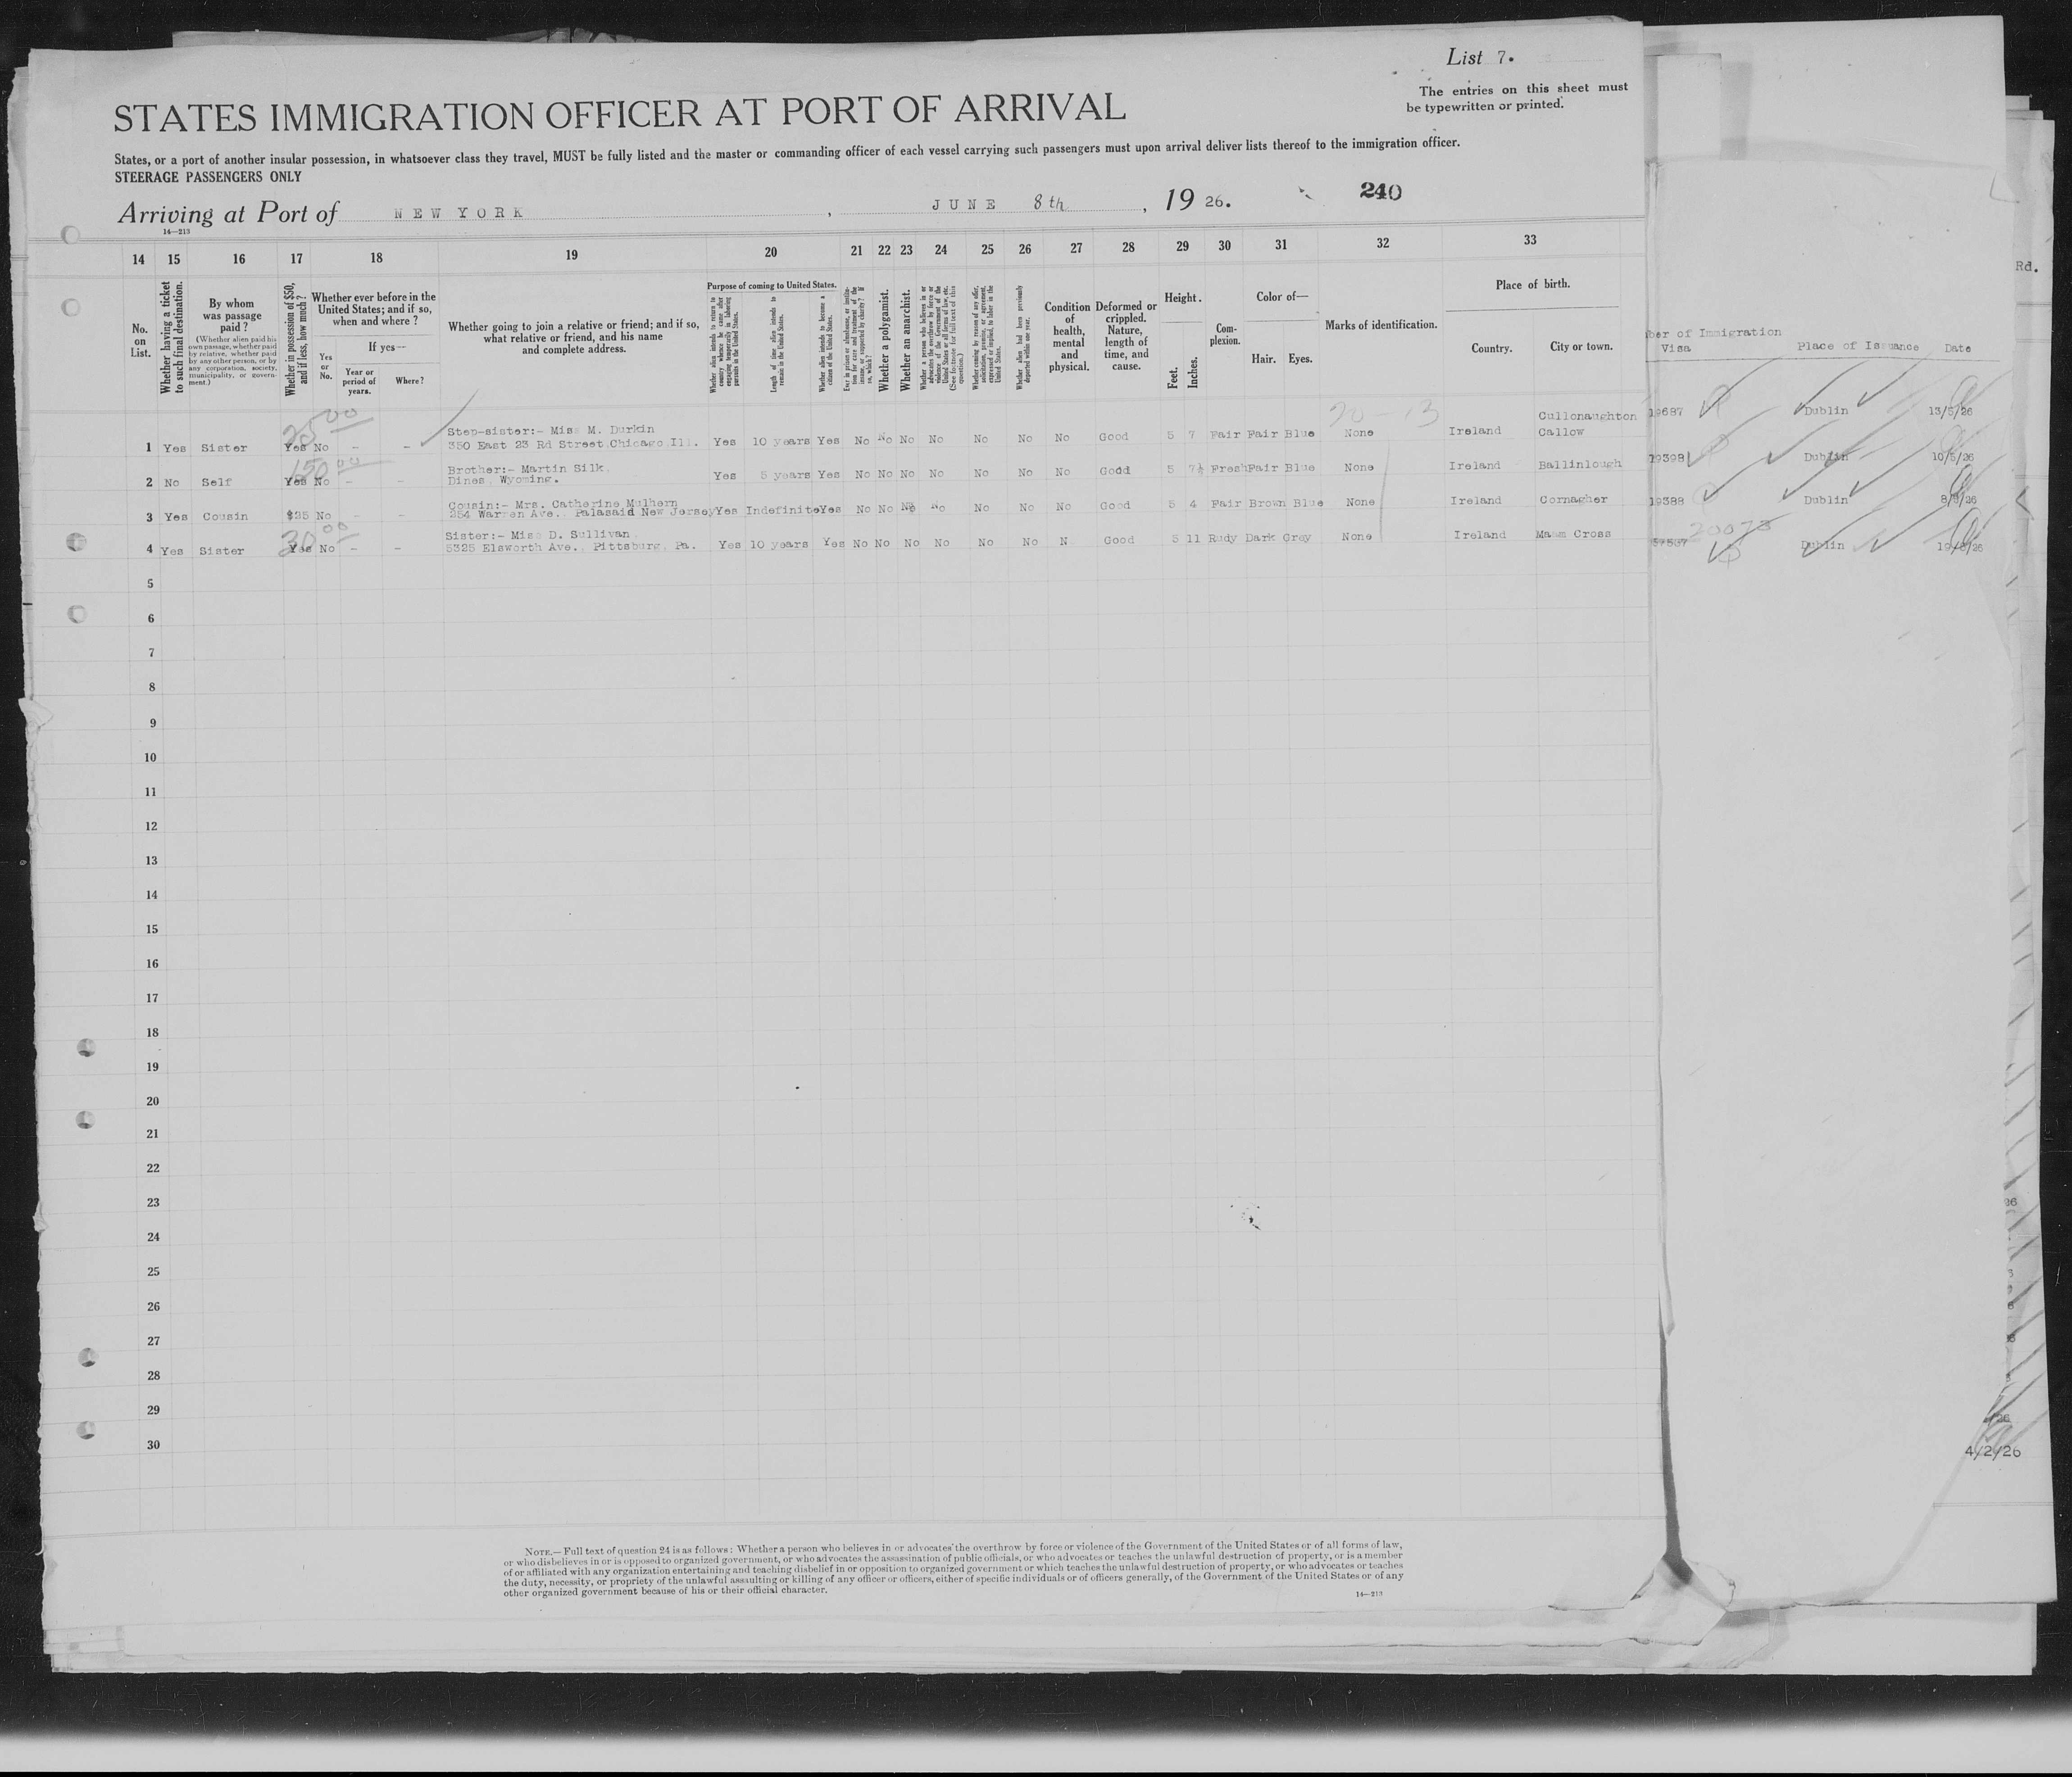 List 7.
The entries on this sheet must
be typewritten or printed.
STATES IMMIGRATION OFFICER AT PORT OF ARRIVAL
States, or a port of another insular possession, in whatsoever class they travel, MUST be fully listed and the master or commanding officer of each vessel carrying such passengers must upon arrival deliver lists thereof to the immigration officer.
STEERAGE PASSENGERS ONLY
Arriving at Port of NEW YORK, JUNE 8th, 1926. 240
14—213
14 15 16 17 18 19 20 21 22 23 24 25 26 27 28 29 30 31 32 33
No. on List.
Whether having a ticket to such final destination.
By whom was passage paid?
(Whether alien paid his own passage, whether paid by relative, whether paid by any other person, or by any corporation, society, municipality, or government.)
Whether in possession of $50, and if less, how much?
Whether ever before in the United States; and if so, when and where?
Yes or No.
If yes—
Year or period of years.
Where?
Whether going to join a relative or friend; and if so, what relative or friend, and his name and complete address.
Purpose of coming to United States.
Whether alien intends to return to country whence he came after engaging temporarily in laboring pursuits in the United States.
Length of time alien intends to remain in the United States.
Whether alien intends to become a citizen of the United States.
Ever in prison or almshouse, or institution for care and treatment of the insane, or supported by charity? If so, which?
Whether a polygamist.
Whether an anarchist.
Whether a person who believes in or advocates the overthrow by force or violence of the Government of the United States or all forms of law, etc. (See footnote for full text of this question.)
Whether coming by reason of any offer, solicitation, promise, or agreement, expressed or implied, to labor in the United States.
Whether alien had been previously deported within one year.
Condition of health, mental and physical.
Deformed or crippled. Nature, length of time, and cause.
Height.
Feet. Inches.
Complexion.
Color of—
Hair. Eyes.
Marks of identification.
Place of birth.
Country. City or town.
ber of Immigration
Visa Place of Issuance Date
Rd.
2500
20-13
Cullonaughton
1 Yes Sister Yes No - - Step-sister:- Miss M. Durkin
350 East 23 Rd Street, Chicago Ill. Yes 10 years Yes No No No No No No No Good 5 7 Fair Fair Blue None Ireland Callow 19687 Dublin 13/5/26
15000
2 No Self Yes No - - Brother:- Martin Silk.
Dines, Wyoming. Yes 5 years Yes No No No No No No No Good 5 7½ Fresh Fair Blue None Ireland Ballinlough 19398 Dublin 10/5/26
3 Yes Cousin $35 No - - Cousin:- Mrs. Catherine Mulhern
254 Warren Ave. Palasaid New Jersey Yes Indefinite Yes No No No No No No No Good 5 4 Fair Brown Blue None Ireland Cornagher 19388 Dublin
3000
20073
4 Yes Sister Yes No - - Sister:- Miss D. Sullivan.
5325 Elsworth Ave., Pittsburg, Pa. Yes 10 years Yes No No No No No No N Good 5 11 Rudy Dark Grey None Ireland Maam Cross Dublin
5
6
7
8
9
10
11
12
13
14
15
16
17
18
19
20
21
22
23
24
25
26
27
28
29
30
4/2/26
NOTE.—Full text of question 24 is as follows: Whether a person who believes in or advocates the overthrow by force or violence of the Government of the United States or of all forms of law,
or who disbelieves in or is opposed to organized government, or who advocates the assassination of public officials, or who advocates or teaches the unlawful destruction of property, or is a member
of or affiliated with any organization entertaining and teaching disbelief in or opposition to organized government or which teaches the unlawful destruction of property, or who advocates or teaches
the duty, necessity, or propriety of the unlawful assaulting or killing of any officer or officers, either of specific individuals or of officers generally, of the Government of the United States or of any
other organized government because of his or their official character.
14—213